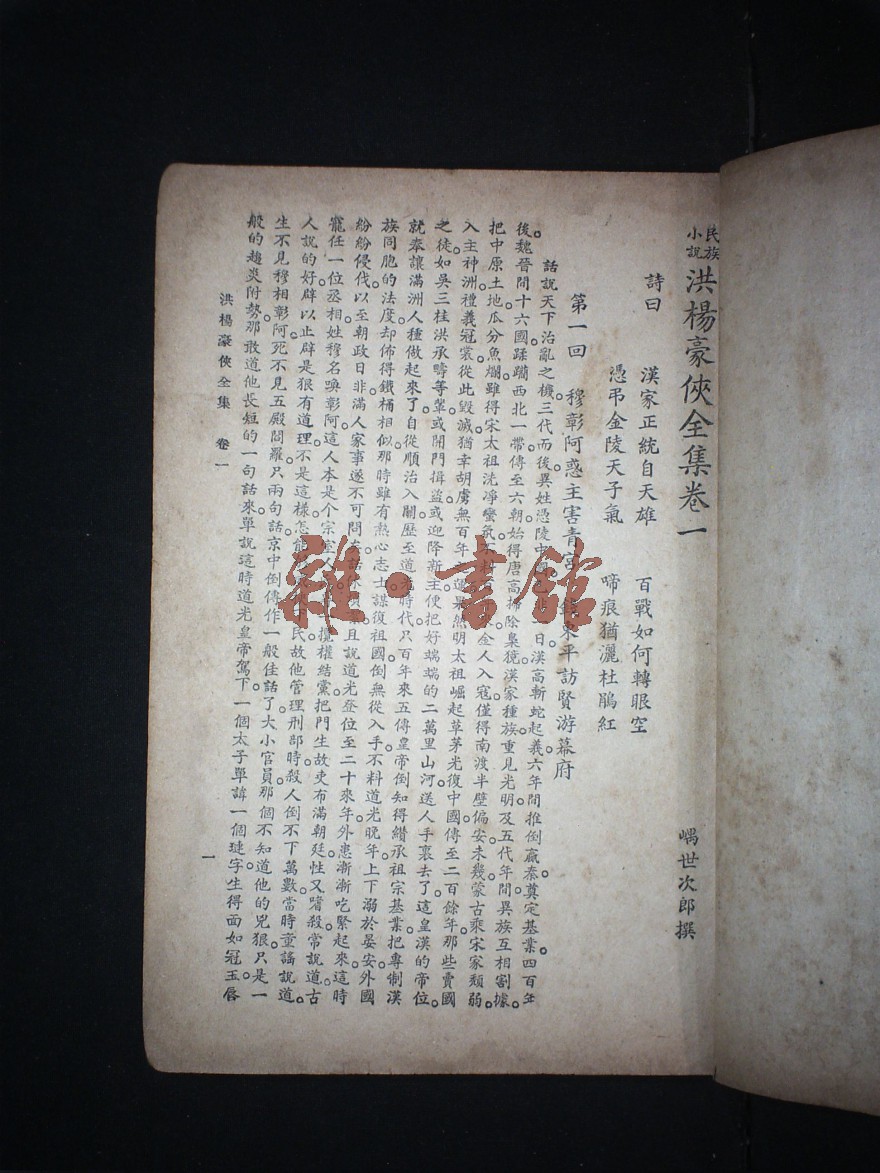 民族小說 洪楊豪俠全集卷一
嵎世次郎撰
詩曰 漢家正統自天雄 百戰如何轉眼空
憑弔金陵天子氣 啼痕猶灑杜鵑紅
第一回 穆彰阿惑主害青宮 錢東平訪賢游幕府
話說天下治亂之機。三代而後異姓憑陵中日。漢高斬蛇起義。六年間推倒嬴秦。奠定基業。四百年
後。魏晉間十六國蹂躪西北一帶。傳至六朝。始得唐高掃除梟獍。漢家種族。重見光明。及五代年間。異族互相割據。
把中原土地瓜分魚爛。雖得宋太祖洗凈蠻氛。金人入寇。僅得南渡半壁偏安。未幾蒙古乘宋家頹弱。
入主神洲。禮義冠裳。從此毀滅。猶幸胡虜無百年運。果然明太祖崛起草茅。光復中國。傳至二百餘年。那些賣國
之徒。如吳三桂洪承疇等輩。或開門揖盜。或迎降新主。便把好端端的二萬里山河。送人手裏去了。這皇漢的帝位。
就奉讓滿洲人種做起來了。自從順治入關。歷至道光時代。只百年來。五傳皇帝。倒知得纘承祖宗基業。把專制漢
族同胞的法度。却佈得鐵桶相似。那時雖有熱心志士。謀復祖國。倒無從入手。不料道光晚年。上下溺於晏安。外國
紛紛侵伐。以至朝政日非。滿人家事。遂不可問矣。且說道光登位至二十來年。外患漸漸吃緊起來。這時
寵任一位丞相。姓穆名喚彰阿。這人本是个宗室人攬權結黨。把門生故吏。布滿朝廷。性又嗜殺。常說道。古
人說的好。辟以止辟。是狠有道理。不是這樣。怎能民。故他管理刑部時。殺人倒不下萬數。當時童謠說道。
生不見穆相彰阿。死不見五殿閻羅。只兩句話。京中倒傳作一般佳話了。大小官員。那個不知道他的兇狠。只是一
般的趨炎附勢。那敢道他長短的一句話來。單說這時道光皇帝駕下一個太子。單諱一個璉字。生得面如冠玉。唇
洪楊豪俠全集 卷一
一
雜·書館